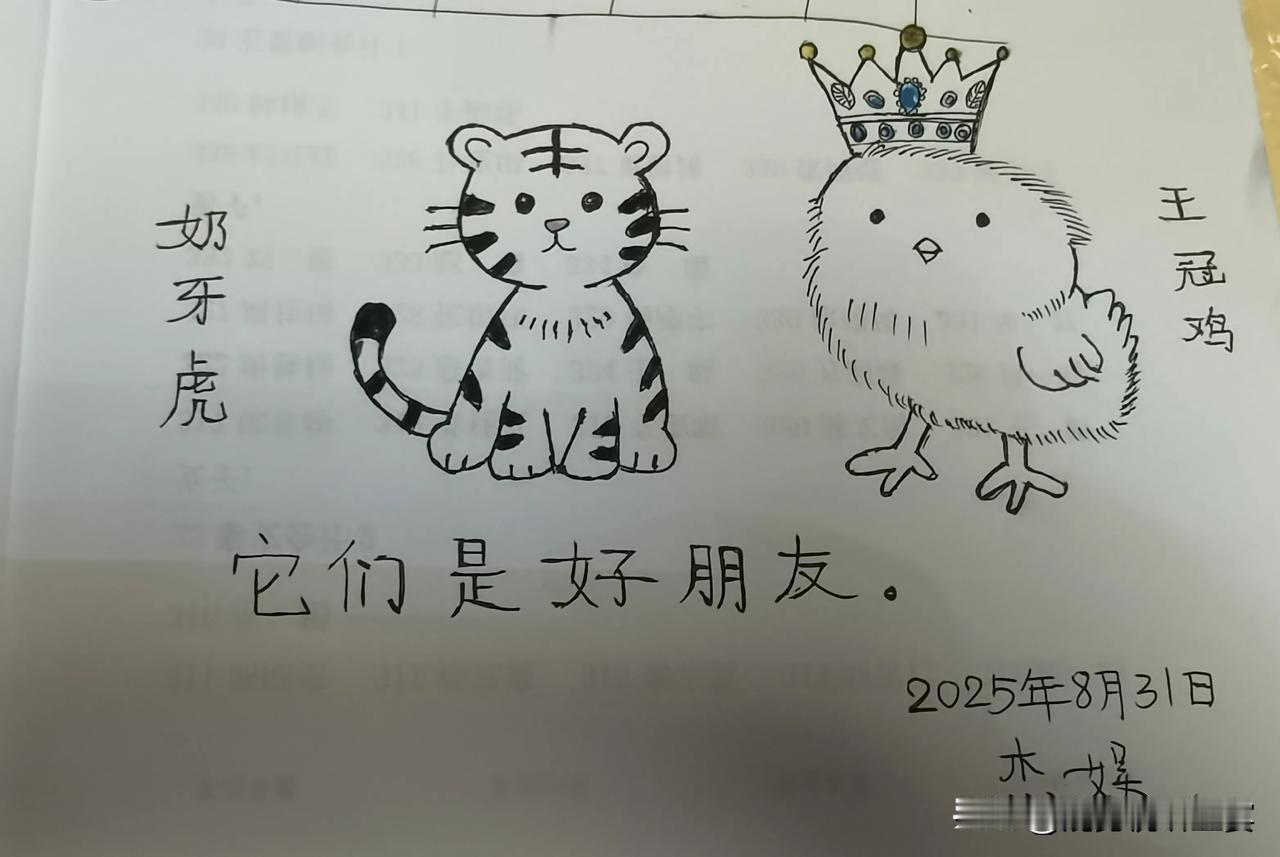 奶牙虎
王冠鸡
它们是好朋友.
2025年8月31日